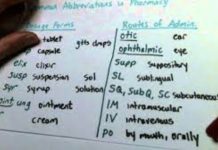 Abbreviations in Pharmacy
Forms
tablet gtts drops
capsule
elix elixir
susp suspension sol
syr syrup solution
oint ung ointment
cream
Routes of Admin.
otic ear
ophthalmic eye
Supp suppository
SL sublingual
SQ, SubQ, SC subcutaneous
IM intramuscular
IV intravenous
po by mouth, orally